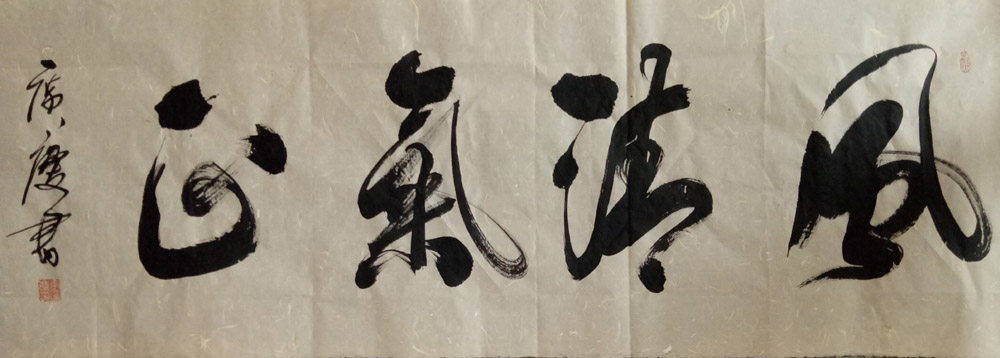 風清氣正
廣慶書